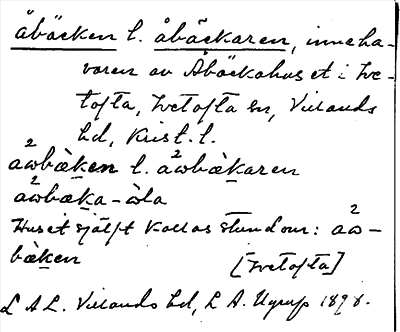 åbäcken l. åbäckaren, inneha-
varen av Åbäckahuset i Ive-
tofta, Ivetofta sn, Villands
hd, Krist. l.
aω²bàḵen l. aω²bàḵaren
aω²bæḵa-ὼla
Huset själft kallas stundom: aω²-
bàḵen [Ivetofta]
L A L. Villands hd, L A. Ugrup 1898.